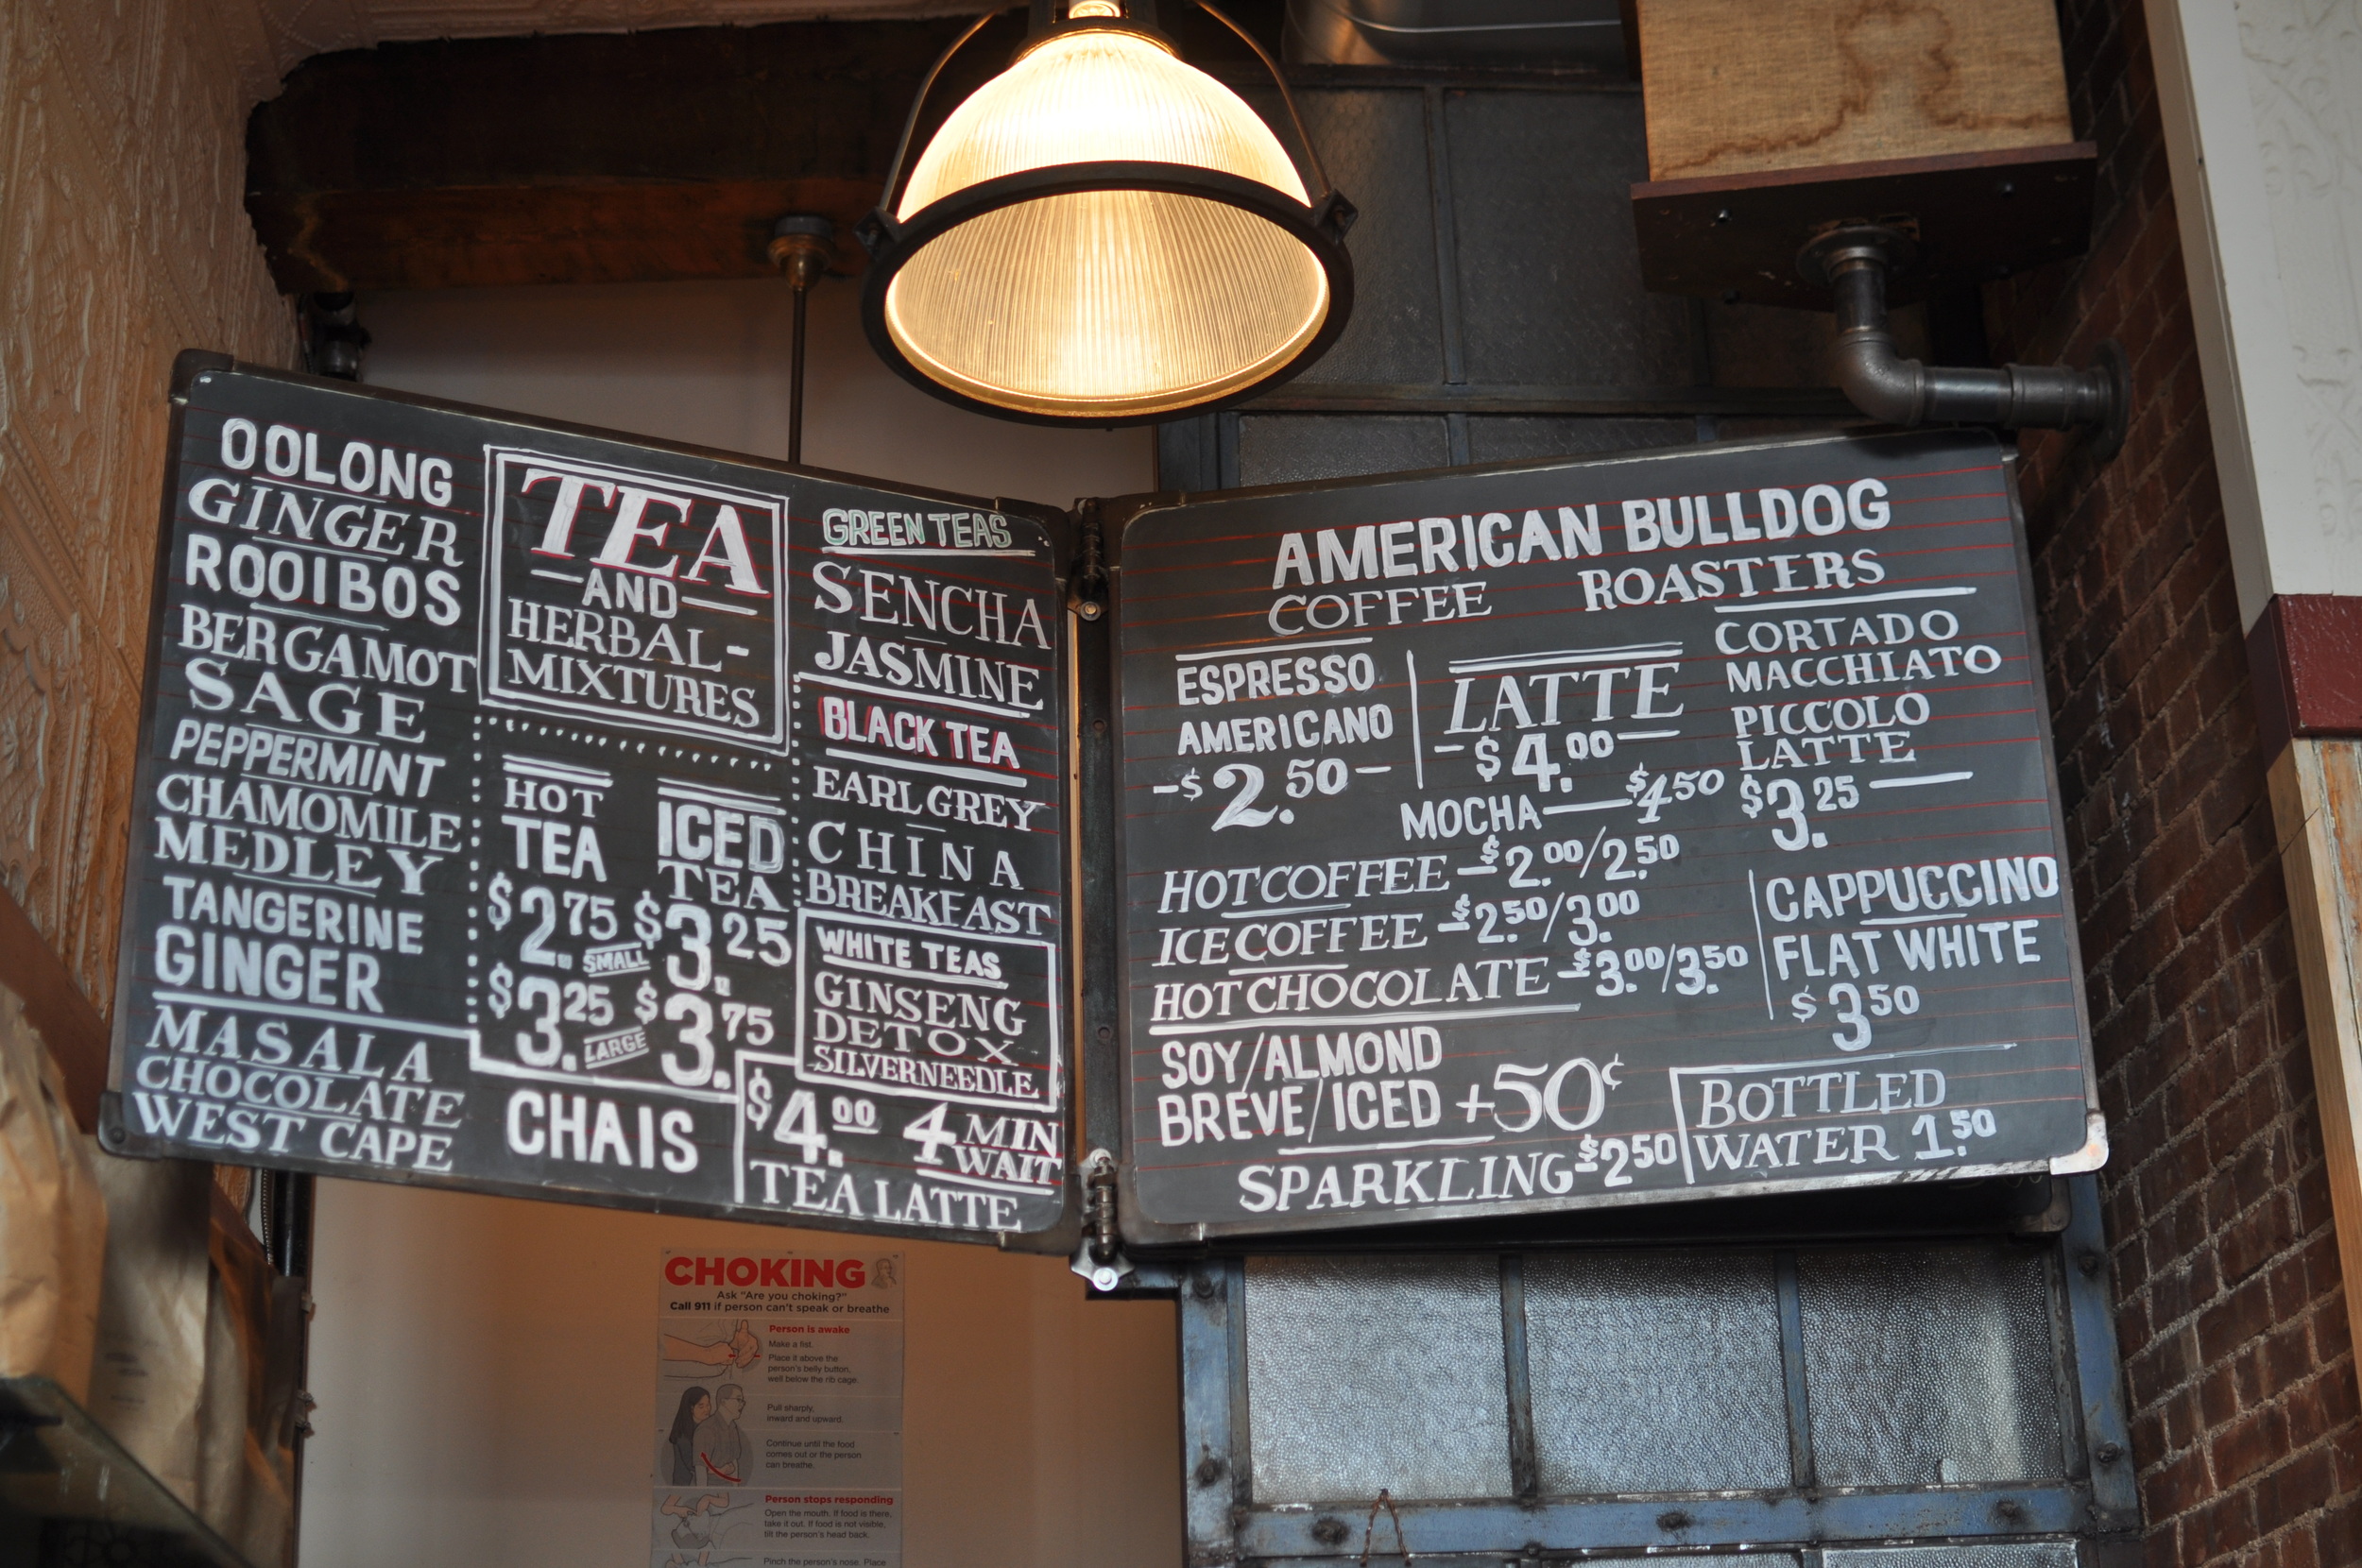 OOLONG
GINGER
ROOIBOS
BERGAMOT
SAGE
PEPPERMINT
CHAMOMILE
MEDLEY
TANGERINE
GINGER
MASALA
CHOCOLATE
WEST CAPE
CHAIS
TEA
AND
HERBAL-
MIXTURES
HOT
TEA
$2.75
SMALL
$3.25
LARGE
ICED
TEA
$3.25
$3.75
GREEN TEAS
SENCHA
JASMINE
BLACK TEA
EARL GREY
CHINA
BREAKFAST
WHITE TEAS
GINSENG
DETOX
SILVERNEEDLE
$4.00 4 MIN
WAIT
TEA LATTE
AMERICAN BULLDOG
COFFEE ROASTERS
ESPRESSO
AMERICANO
-$2.50-
LATTE
-$4.00-
CORTADO
MACCHIATO
PICCOLO
LATTE
$3.25
MOCHA — $4.50
HOT COFFEE - $2.00/2.50
ICE COFFEE - $2.50/3.00
HOT CHOCOLATE - $3.00/3.50
CAPPUCCINO
FLAT WHITE
$3.50
SOY/ALMOND
BREVE/ICED +50¢
SPARKLING $2.50
BOTTLED
WATER 1.50
CHOKING
Ask "Are you choking?"
Call 911 if person can't speak or breathe
Person is awake
Make a fist.
Place it above the
person's belly button,
well below the rib cage.
Pull sharply,
inward and upward.
Continue until the food
comes out or the person
can breathe.
Person stops responding
Open the mouth. If food is there,
take it out. If food is not visible,
tilt the person's head back.
Pinch the person's nose. Place